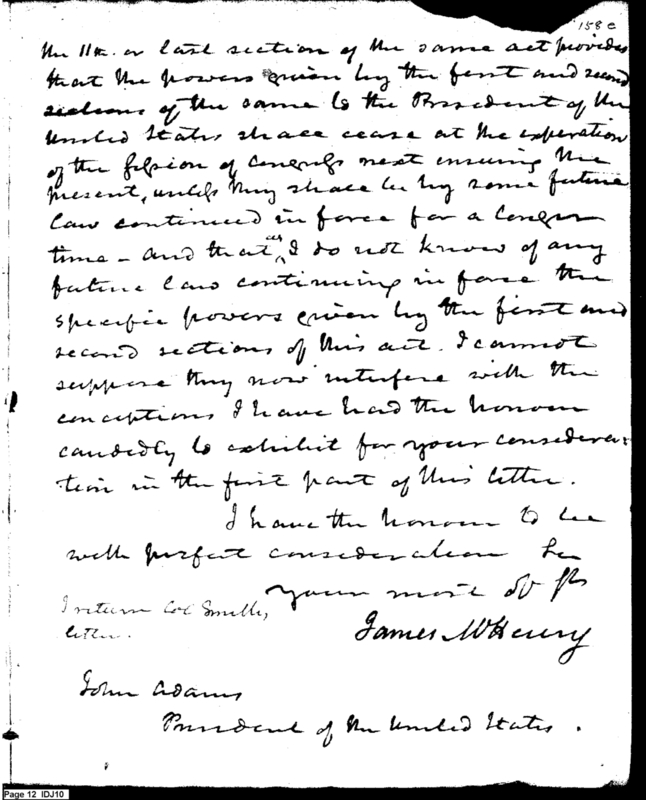 158 e
the 11th. or last section of the same act provides
that the powers given by the first and second
sections of the same to the President of the
United States shall cease at the experation
of the session of Congress next ensuing the
present, unless they shall be by some future
law continued in force for a longer
time - and that as I do not know of any
future law continuing in force the
specific powers given by the first and
second sections of this act. I cannot
suppose they now interfere with the
conceptions I have had the honour
candedly to exhibit for your considera-
tion in the first part of this letter.
I have the honour to be
with perfect consideration Sir
your most ob St
James McHenry
I return Col Smith,
letter.
John Adams
President of the United States.
Page 12 IDJ10